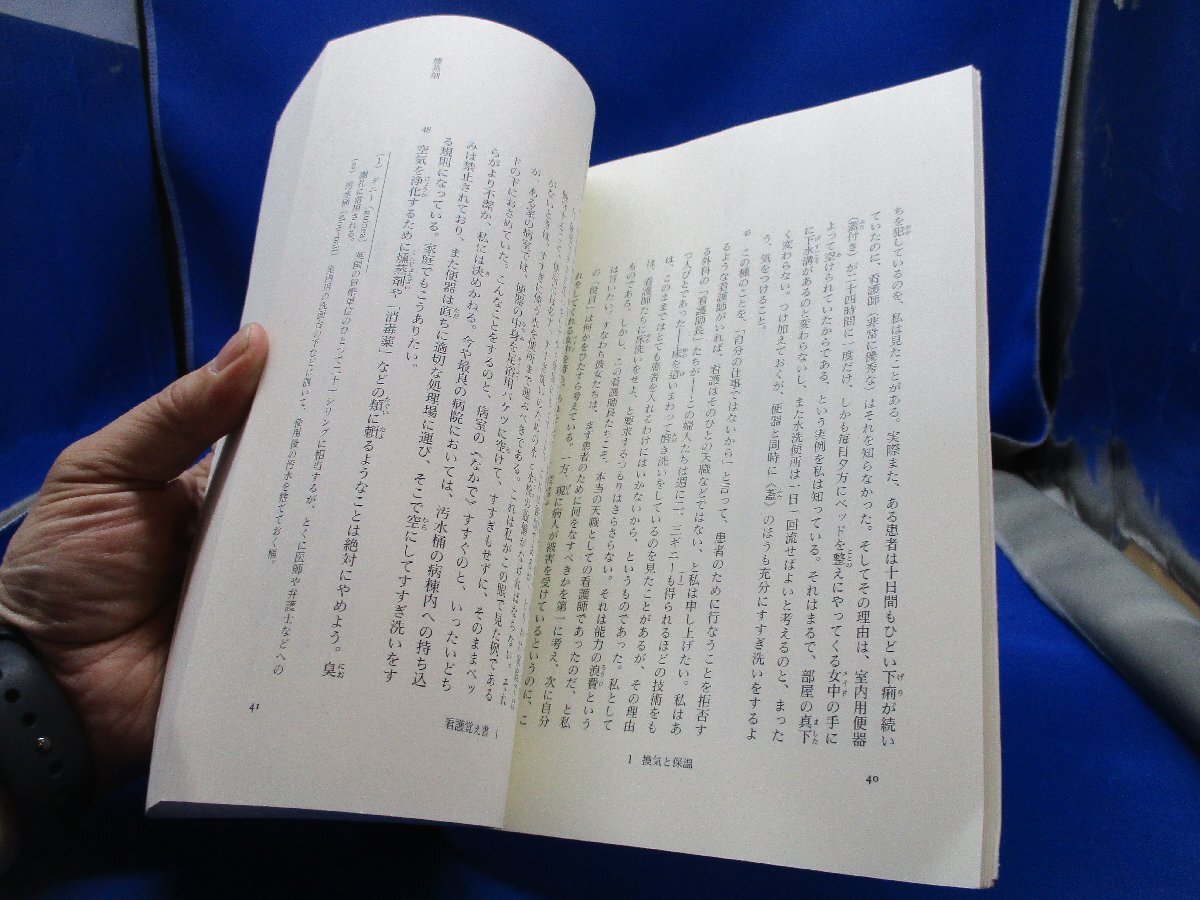 ちを犯しているのを、私は見たことがある。実際また、ある患者は十日間もひどい下痢が続い
ていたのに、看護師（非常に優秀な）はそれを知らなかった。そしてその理由は、室内用便器
（蓋付き）が二十四時間に一度だけ、しかも毎日夕方にベッドを整えにやってくる女中の手に
よって空けられていたからである、という実例を私は知っている。それはまるで、部屋の真下
に下水溝があるのと変わらないし、また水洗便所は一日一回流せばよいと考えるのと、まった
く変わらない。つけ加えておくが、便器と同時に《蓋》のほうも充分にすすぎ洗いをするよ
う、気をつけること。
この種のことを、「自分の仕事ではないから」と言って、患者のために行なうことを拒否す
るような看護師がいれば、看護はそのひとの天職などではない、と私は申し上げたい。私はあ
る外科の「看護師長」たちが——この婦人たちは週に二、三ギニー(1)も得られるほどの技術をも
つ人びとであった——床を這いまわって擦り洗いをしているのを見たことがあるが、その理由
は、このままではとても患者を入れるわけにはいかないから、というものであった。私として
は、看護師たちに床洗いをせよ、と要求するつもりはさらさらない。それは能力の浪費という
ものである。しかし、この看護師長たちこそ、本当の天職としての看護師であったのだ、と私
は言いたい。すなわち彼女たちは、まず患者のために何をなすべきかを第一に考え、次に自分
の「役目」は何かをひたすら考えている。一方、現に病人が被害を受けているというのに、こ
1 換気と保温
40
が、ある家の病室では、便器の中身を足浴用バケツに空けて、すすぎもせずに、そのままベッ
ドの下におさめていた。こんなことをするのと、病室の《なかで》すすぐのと、いったいどち
らがより不潔か、私には決めかねる。今や最良の病院においては、汚水桶の病棟内への持ち込
みは禁止されており、また便器は直ちに適切な処理場に運び、そこで空にしてすすぎ洗いをす
る規則になっている。家庭でもこうありたい。
燻蒸剤
48
空気を浄化するために燻蒸剤や「消毒薬」などの類に頼るようなことは絶対にやめよう。臭
(1) ギニー（guinea） 英国の貨幣単位のひとつで二十一シリングに相当するが、とくに医師や弁護士などへの
謝礼に常用される。
看護覚え書
41